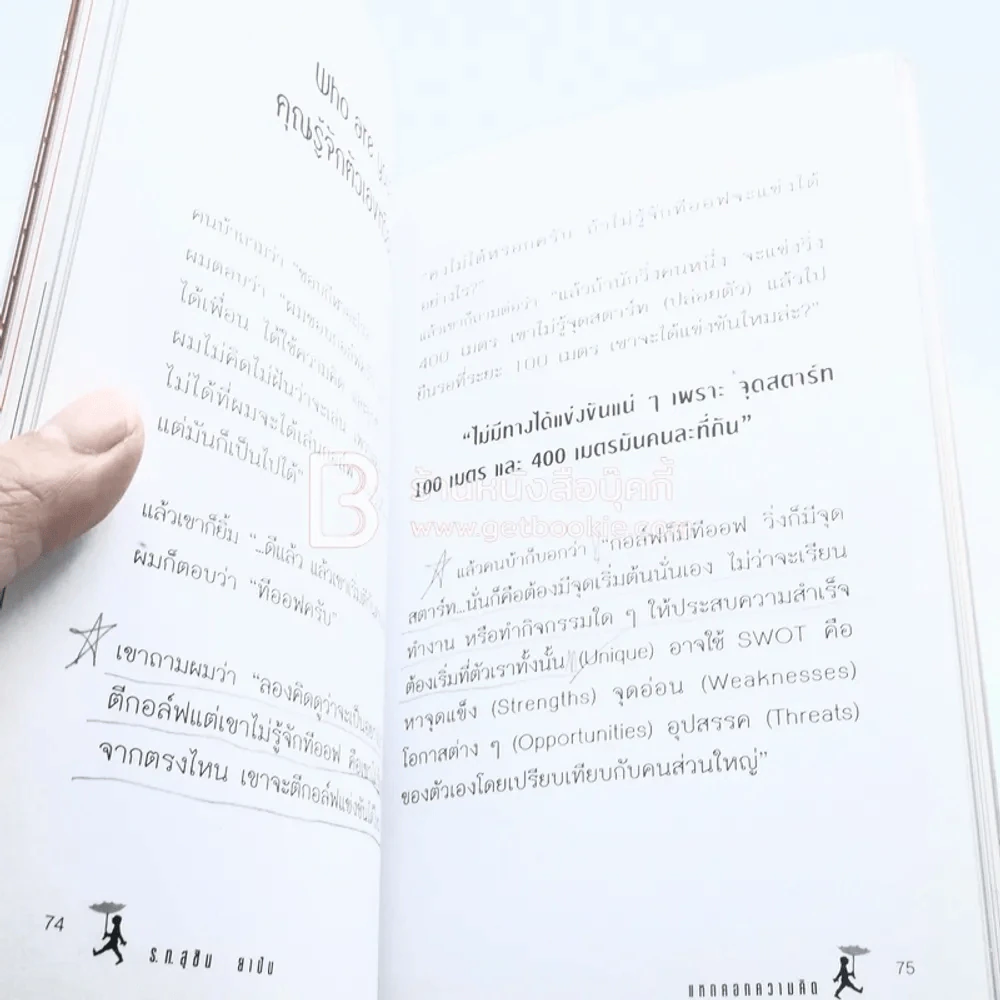 Who are
คุณรู้จักตัวเอง
คนบ้าถามว่า “ชอบกีฬา
ผมตอบว่า “ผมชอบกอล์ฟครับ
ได้เพื่อน ได้ใช้ความคิด
ผมไม่คิดไม่ฝันว่าจะเล่น
ไม่ได้ที่ผมจะได้เล่นกอล์ฟ
แต่มันก็เป็นไปได้”
แล้วเขาก็ยิ้ม “...ดีแล้ว แล้วเขาเริ่มตี
ผมก็ตอบว่า “ทีออฟครับ”
เขาถามผมว่า “ลองคิดดูว่าจะเป็น
ตีกอล์ฟแต่เขาไม่รู้จักทีออฟ คือ
จากตรงไหน เขาจะตีกอล์ฟแข่งขันได้
74
ร.ท.สุชิน ยาปัน
“คงไม่ได้หรอกครับ ถ้าไม่รู้จักทีออฟจะแข่งได้
อย่างไร?”
แล้วเขาก็ถามต่อว่า “แล้วถ้านักวิ่งคนหนึ่ง จะแข่งวิ่ง
400 เมตร เขาไม่รู้จุดสตาร์ท (ปล่อยตัว) แล้วไป
ยืนรอที่ระยะ 100 เมตร เขาจะได้แข่งขันไหมล่ะ?”
“ไม่มีทางได้แข่งขันแน่ ๆ เพราะ จุดสตาร์ท
100 เมตร และ 400 เมตรมันคนละที่กัน”
B ร้านหนังสือบุ๊คกี้
www.getbookie.com
แล้วคนบ้าก็บอกว่า “กอล์ฟก็มีทีออฟ วิ่งก็มีจุด
สตาร์ท...นั่นก็คือต้องมีจุดเริ่มต้นนั่นเอง ไม่ว่าจะเรียน
ทำงาน หรือทำกิจกรรมใด ๆ ให้ประสบความสำเร็จ
ต้องเริ่มที่ตัวเราทั้งนั้น (Unique) อาจใช้ SWOT คือ
หาจุดแข็ง (Strengths) จุดอ่อน (Weaknesses)
โอกาสต่าง ๆ (Opportunities) อุปสรรค (Threats)
ของตัวเองโดยเปรียบเทียบกับคนส่วนใหญ่”
แหกคอกความคิด
75